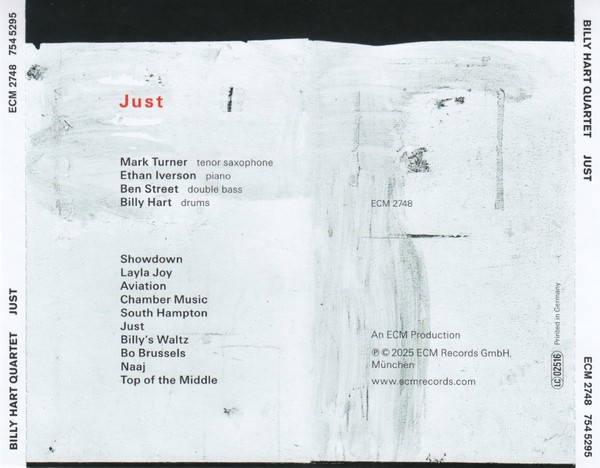 ECM 2748 754 5295
BILLY HART QUARTET JUST
Just
Mark Turner tenor saxophone
Ethan Iverson piano
Ben Street double bass
Billy Hart drums
ECM 2748
Showdown
Layla Joy
Aviation
Chamber Music
South Hampton
Just
Billy's Waltz
Bo Brussels
Naaj
Top of the Middle
An ECM Production
℗ © 2025 ECM Records GmbH,
München
www.ecmrecords.com
LC 02516 Printed in Germany
BILLY HART QUARTET JUST
ECM 2748 754 5295